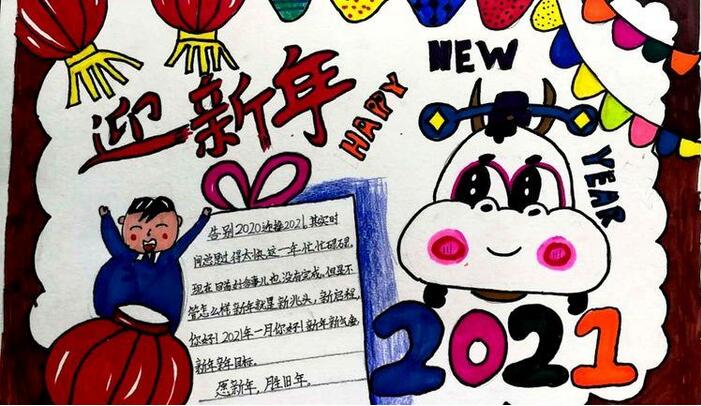 迎新年
HAPPY
NEW
YEAR
告别2020迎接2021,其实时
间总是过得太快,这一年忙忙碌碌,
现在回首好多事儿也没有完成,但是不
管怎么样新年就是新兆头,新启程,
你好!2021年一月你好!新年新气象,
新年新年目标。
愿新年,胜旧年。
2021